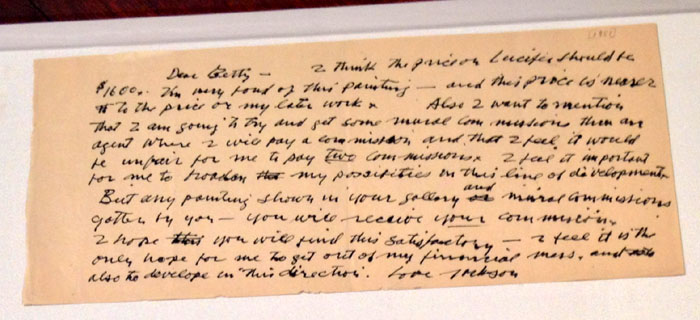 Dear Betty — I think the price on Lucifer should be
$1600. I'm very fond of this painting — and this price is nearer
to the price of my later work. Also I want to mention
that I am going to try and get some mural commissions thru an
agent where I will pay a commission and that I feel it would
be unfair for me to pay two commissions. I feel it important
for me to broaden the my possibilities in this line of development.
But any painting shown in your gallery and or mural commissions
gotten by you — you will receive your commission.
I hope this you will find this satisfactory — I feel it is the
only hope for me to get out of my financial mess. and
also to develope in this direction. Love Jackson